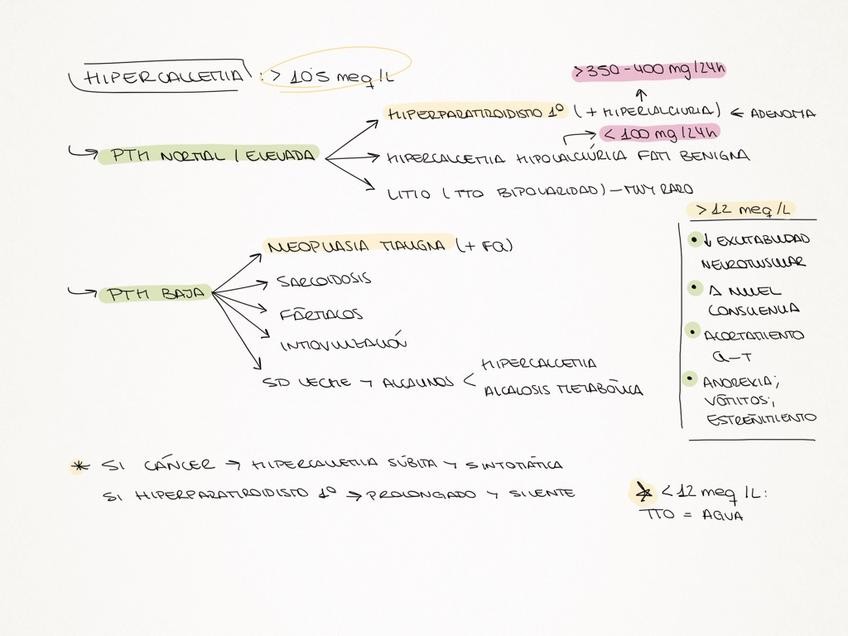 HIPERCALCEMIA : > 10'5 meq/L
>350-400 mg/24h
HIPERPARATIROIDISMO 1º (+ HIPERCALCIURIA) ← ADENOMA
< 100 mg/24h
↳ PTH NORMAL / ELEVADA
HIPERCALCEMIA HIPOCALCIÚRICA FAM BENIGNA
LITIO (TTO BIPOLARIDAD) — MUY RARO
> 12 meq/L
• ↓ EXCITABILIDAD
NEUROMUSCULAR
• Δ NIVEL
CONSCIENCIA
• ACORTAMIENTO
Q-T
• ANOREXIA;
VÓMITOS;
ESTREÑIMIENTO
NEOPLASIA MALIGNA (+ FQ)
SARCOIDOSIS
↳ PTH BAJA
FÁRMACOS
INMOVILIZACIÓN
SD LECHE Y ALCALINOS <
HIPERCALCEMIA
ALCALOSIS METABÓLICA
* SI CÁNCER → HIPERCALCEMIA SÚBITA Y SINTOMÁTICA
SI HIPERPARATIROIDISMO 1º → PROLONGADO Y SILENTE
* < 12 meq/L:
TTO = AGUA